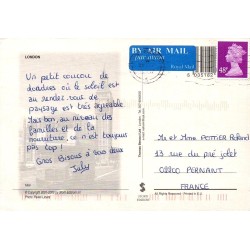 LONDON
Un petit coucou de
Londres où le soleil est
au rendez-vous. Le
paysage est très agréable
Mais bon, au niveau des
familles et de la
nourriture, ce n'est toujours
pas top!
Gros Bisous à vous deux
July
BY AIR MAIL
par avion
Royal Mail
48
Mr et Mme POTTIER Roland
33 rue du pré jolet
02200 PERNANT
FRANCE